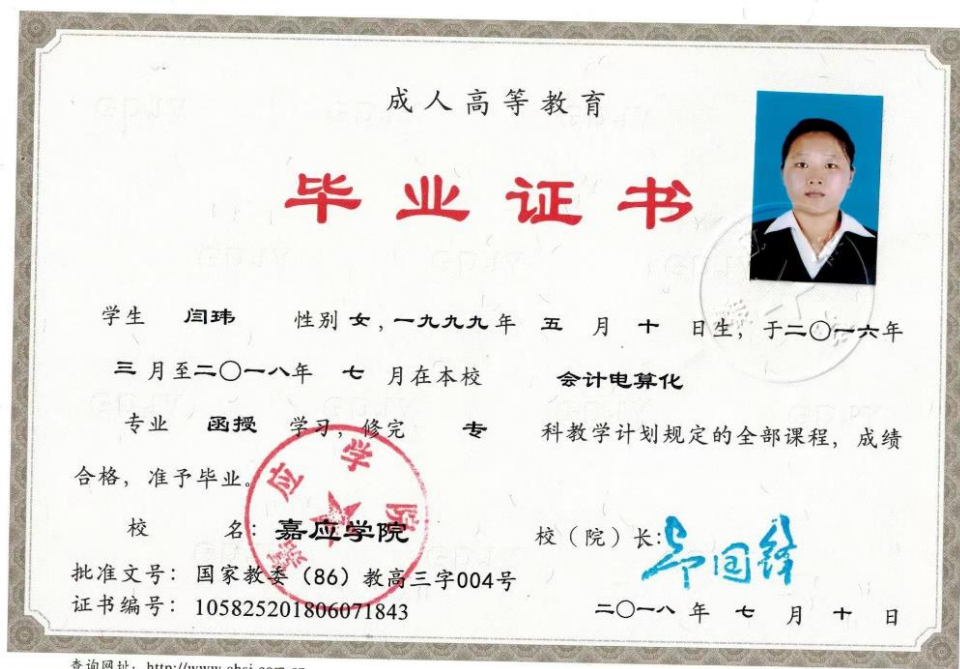 成人高等教育
毕业证书
学生 闫玮 性别 女，一九九九年 五 月 十 日生，于二〇一六年
三 月至二〇一八年 七 月在本校 会计电算化
专业 函授 学习，修完 专 科教学计划规定的全部课程，成绩
合格，准予毕业。
校 名：嘉应学院
校（院）长：
批准文号：国家教委（86）教高三字004号
证书编号：105825201806071843
二〇一八 年 七 月 十 日
嘉应学院